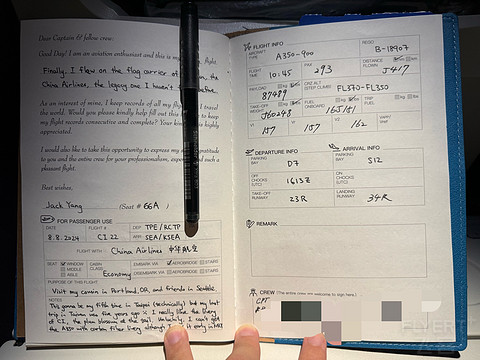 Dear Captain & fellow crew:
Good Day! I am an aviation enthusiast and this is my flight
Finally, I flew on the flag carrier of
China Airlines, the legacy one I haven't
As an interest of mine, I keep records of all my flights I travel
the world. Would you please kindly help fill out this to
keep my flight records consecutive and complete? Your kindness is highly
appreciated.
I would also like to take this opportunity to express my gratitude
to you and the entire crew for your professionalism, and such a
pleasant flight.
Best wishes,
Jack Yang (Seat # 66A )
FOR PASSENGER USE
DATE FLIGHT # DEP. TPE/RCTP
8.8.2024 CI 22 ARR. SEA/KSEA
FLIGHT WITH China Airlines 中華航空
SEAT WINDOW MIDDLE AISLE CABIN CLASS Economy EMBARK VIA AEROBRIDGE STAIRS
DISEMBARK VIA AEROBRIDGE STAIRS
PURPOSE OF THIS FLIGHT
Visit my cousin in Portland, OR, and friends in Seattle.
NOTES
This gonna be my fifth time in Taipei (technically) but my last
trip in Taiwan was five years ago. I really like the livery
of CI, the plum blossom at the tail. Unluckily, I can't get
the A350 with carbon fiber livery although it early in
FLIGHT INFO
AIRCRAFT TYPE A350-900 REGO B-18907
FLIGHT TIME 10:45 PAX 293 DISTANCE FLOWN J417
PAYLOAD kg lb 89489 CRZ ALT (STEP CLIMB) FL370-FL350
TAKE-OFF WEIGHT J60248 FUEL ONBOARD 165141 TRIP FUEL
V1 157 VR 157 V2 162
DEPARTURE INFO ARRIVAL INFO
PARKING BAY D7 PARKING BAY S12
OFF CHOCKS (UTC) 1613Z ON CHOCKS (UTC)
TAKEOFF RUNWAY 23R LANDING RUNWAY 34R
REMARK
CREW (The entire crew are welcome to sign here.)
CPT
FLYERT